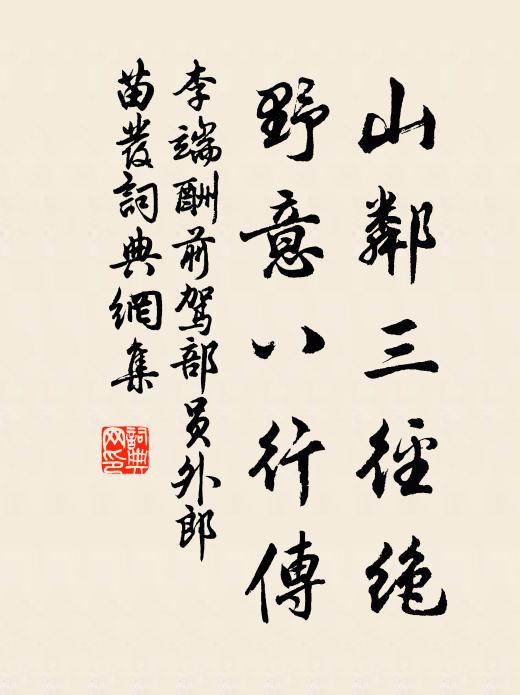 山鄰三徑絶
野意八行傳
李端酬前駕部員外郎
苗發詞典網集
詞典網印